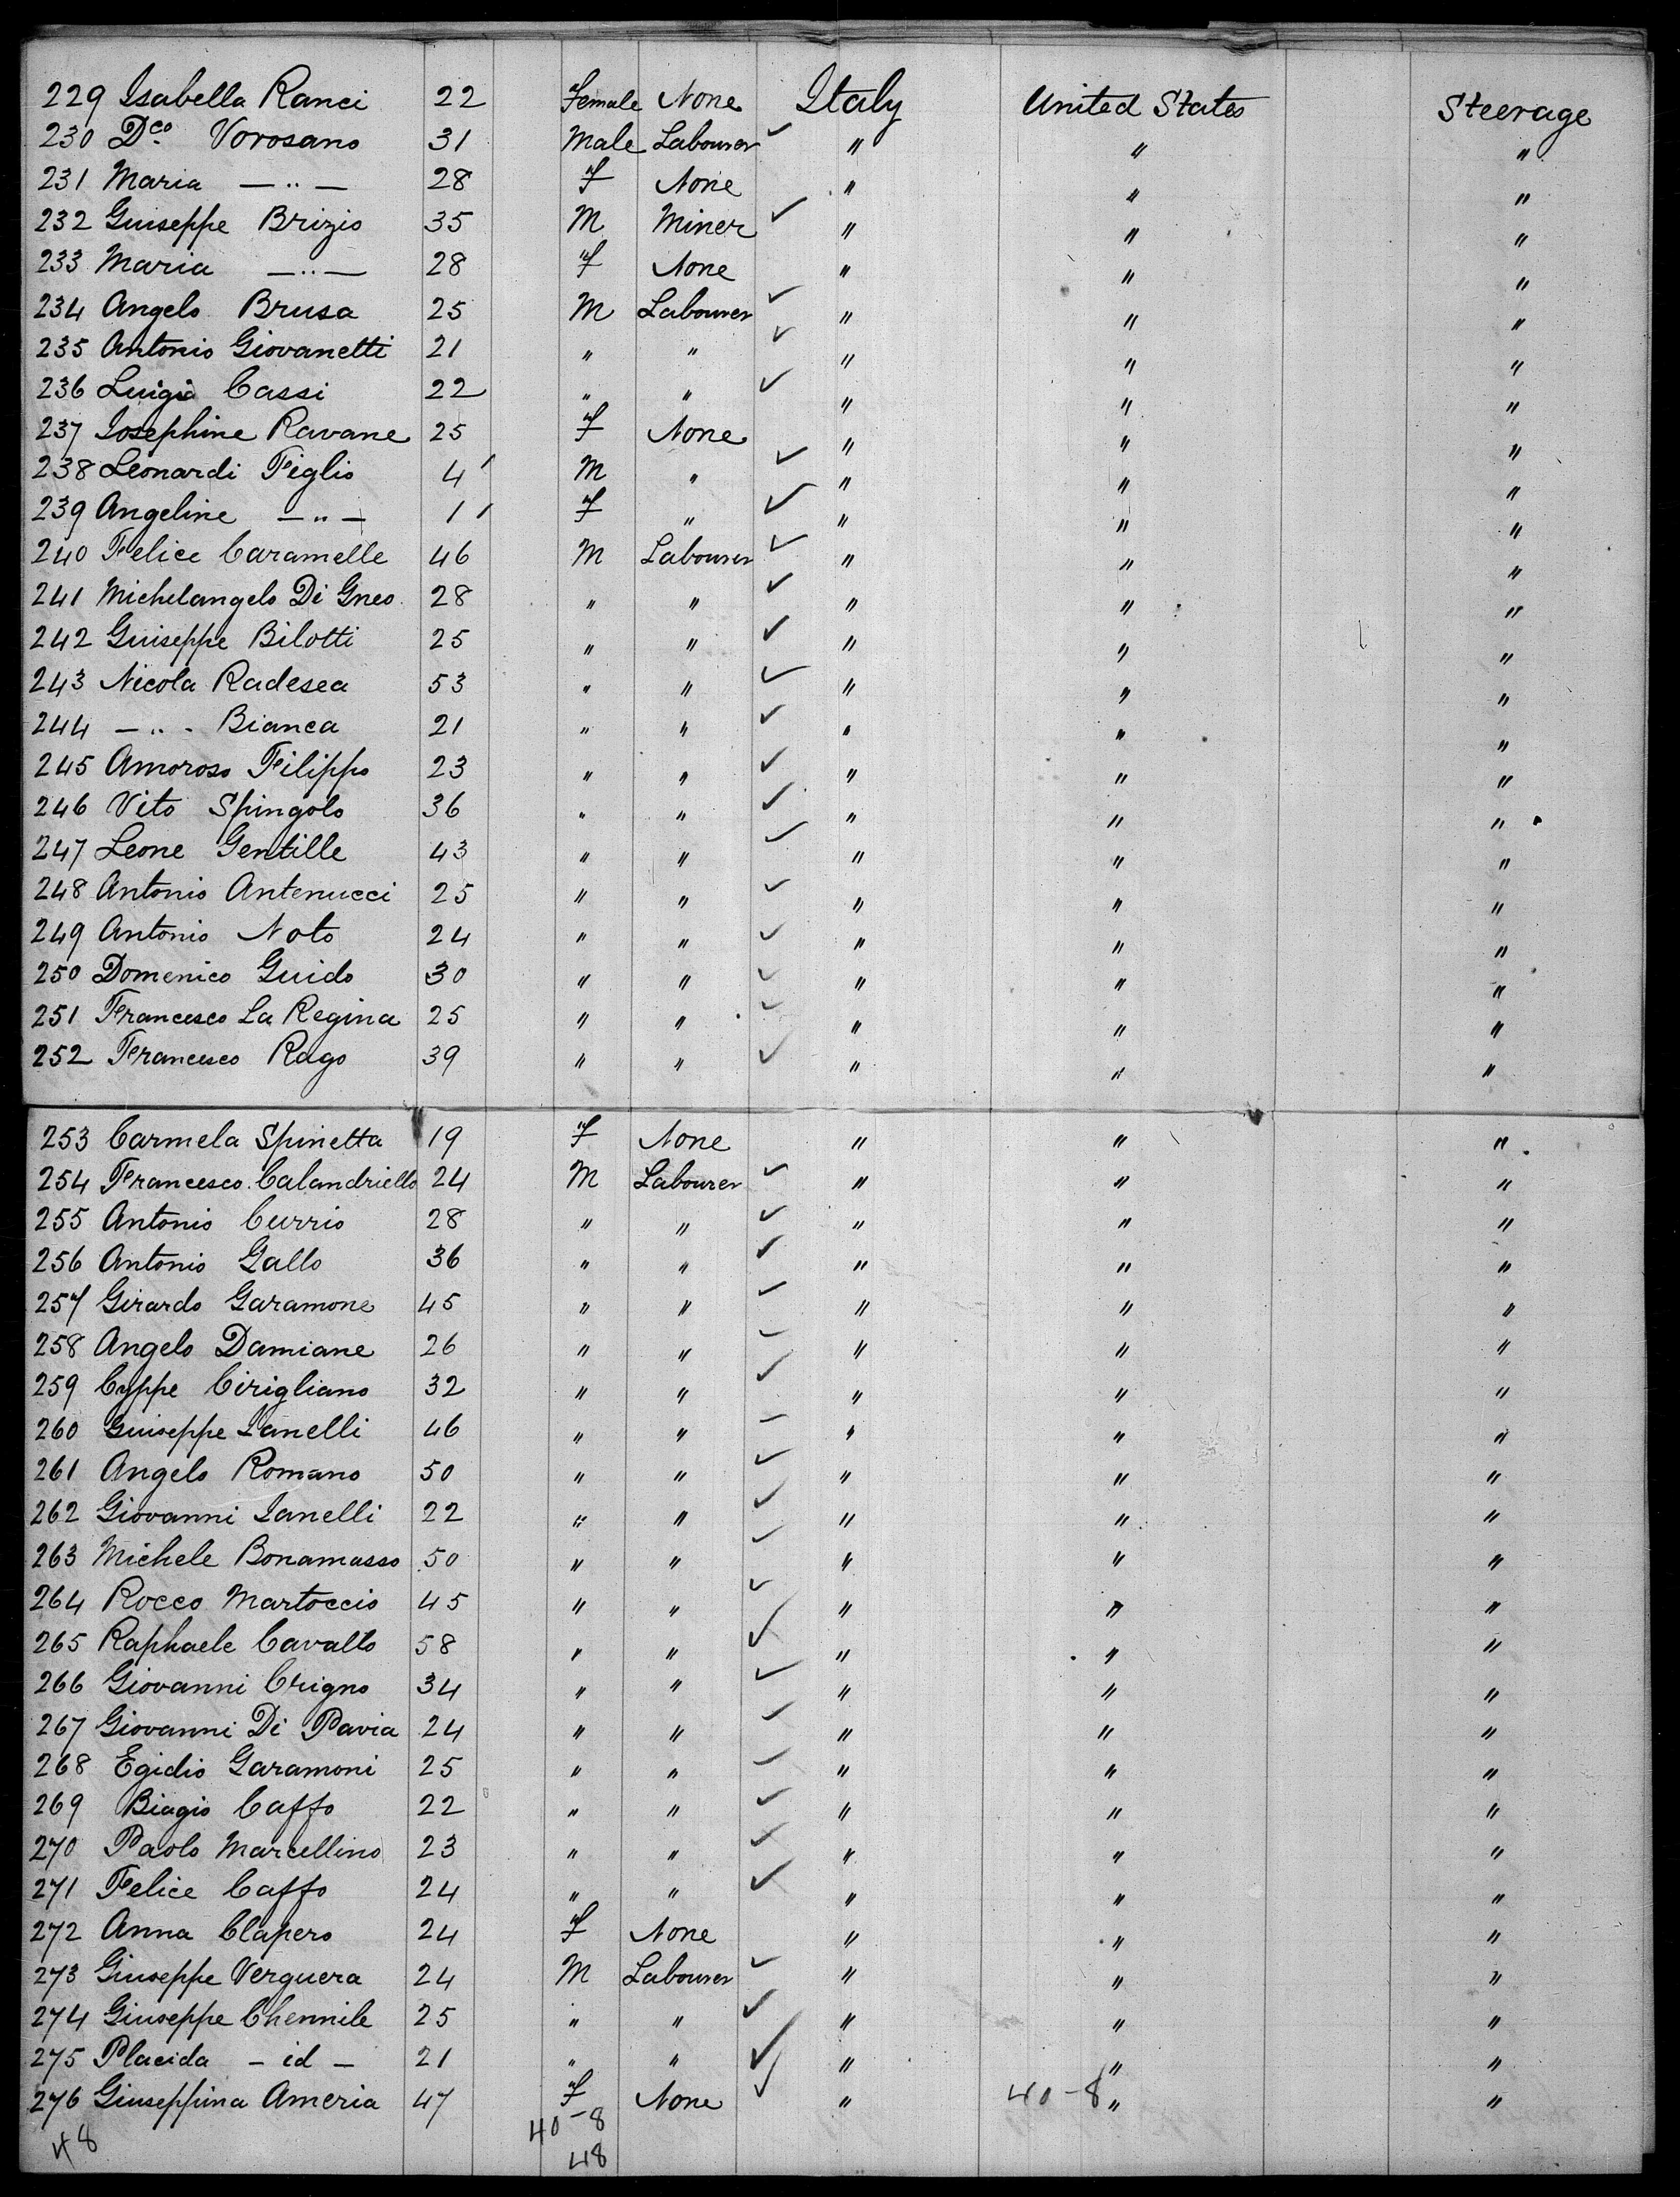 229 Isabella Ranci 22 Female None Italy United States Steerage
230 Dco Vorosano 31 Male Labourer ✓ " " "
231 Maria — " — 28 F None " " "
232 Guiseppe Brizio 35 M Miner ✓ " " "
233 Maria — " — 28 F None " " "
234 Angelo Brusa 25 M Labourer ✓ " " "
235 Antonio Giovanetti 21 " " ✓ " " "
236 Luigi Cassi 22 " " ✓ " " "
237 Josephine Ravane 25 F None " " "
238 Leonardi Figlio 4 M " ✓ " " "
239 Angeline — " — 1 F " ✓ " " "
240 Felice Caramelle 46 M Labourer ✓ " " "
241 Michelangelo Di Gneo 28 " " ✓ " " "
242 Guiseppe Bilotti 25 " " ✓ " " "
243 Nicola Radesca 53 " " ✓ " " "
244 — " - Bianca 21 " " ✓ " " "
245 Amoroso Filippo 23 " " ✓ " " "
246 Vito Spingolo 36 " " ✓ " " "
247 Leone Gentille 43 " " ✓ " " "
248 Antonio Antenucci 25 " " ✓ " " "
249 Antonio Noto 24 " " ✓ " " "
250 Domenico Guido 30 " " ✓ " " "
251 Francesco La Regina 25 " " ✓ " " "
252 Francesco Rago 39 " " ✓ " " "
253 Carmela Spinetta 19 F None " " "
254 Francesco Calandriello 24 M Labourer ✓ " " "
255 Antonio Currio 28 " " ✓ " " "
256 Antonio Gallo 36 " " ✓ " " "
257 Girardo Garamone 45 " " ✓ " " "
258 Angelo Damiane 26 " " ✓ " " "
259 Cyppe Cirigliano 32 " " ✓ " " "
260 Guiseppe Ianelli 46 " " ✓ " " "
261 Angelo Romano 50 " " ✓ " " "
262 Giovanni Ianelli 22 " " ✓ " " "
263 Michele Bonamasso 50 " " ✓ " " "
264 Rocco Martoccio 45 " " ✓ " " "
265 Raphaele Cavallo 58 " " ✓ " " "
266 Giovanni Crigno 34 " " ✓ " " "
267 Giovanni Di Pavia 24 " " ✓ " " "
268 Egidio Garamoni 25 " " ✓ " " "
269 Biagio Caffo 22 " " ✓ " " "
270 Paolo Marcellino 23 " " ✓ " " "
271 Felice Caffo 24 " " ✓ " " "
272 Anna Clapero 24 F None " " "
273 Giuseppe Verguera 24 M Labourer ✓ " " "
274 Giuseppe Chennile 25 " " ✓ " " "
275 Placida - id - 21 " " ✓ " " "
276 Giuseppina Ameria 47 F None ✓ " 40-8 " "
48 40-8
48